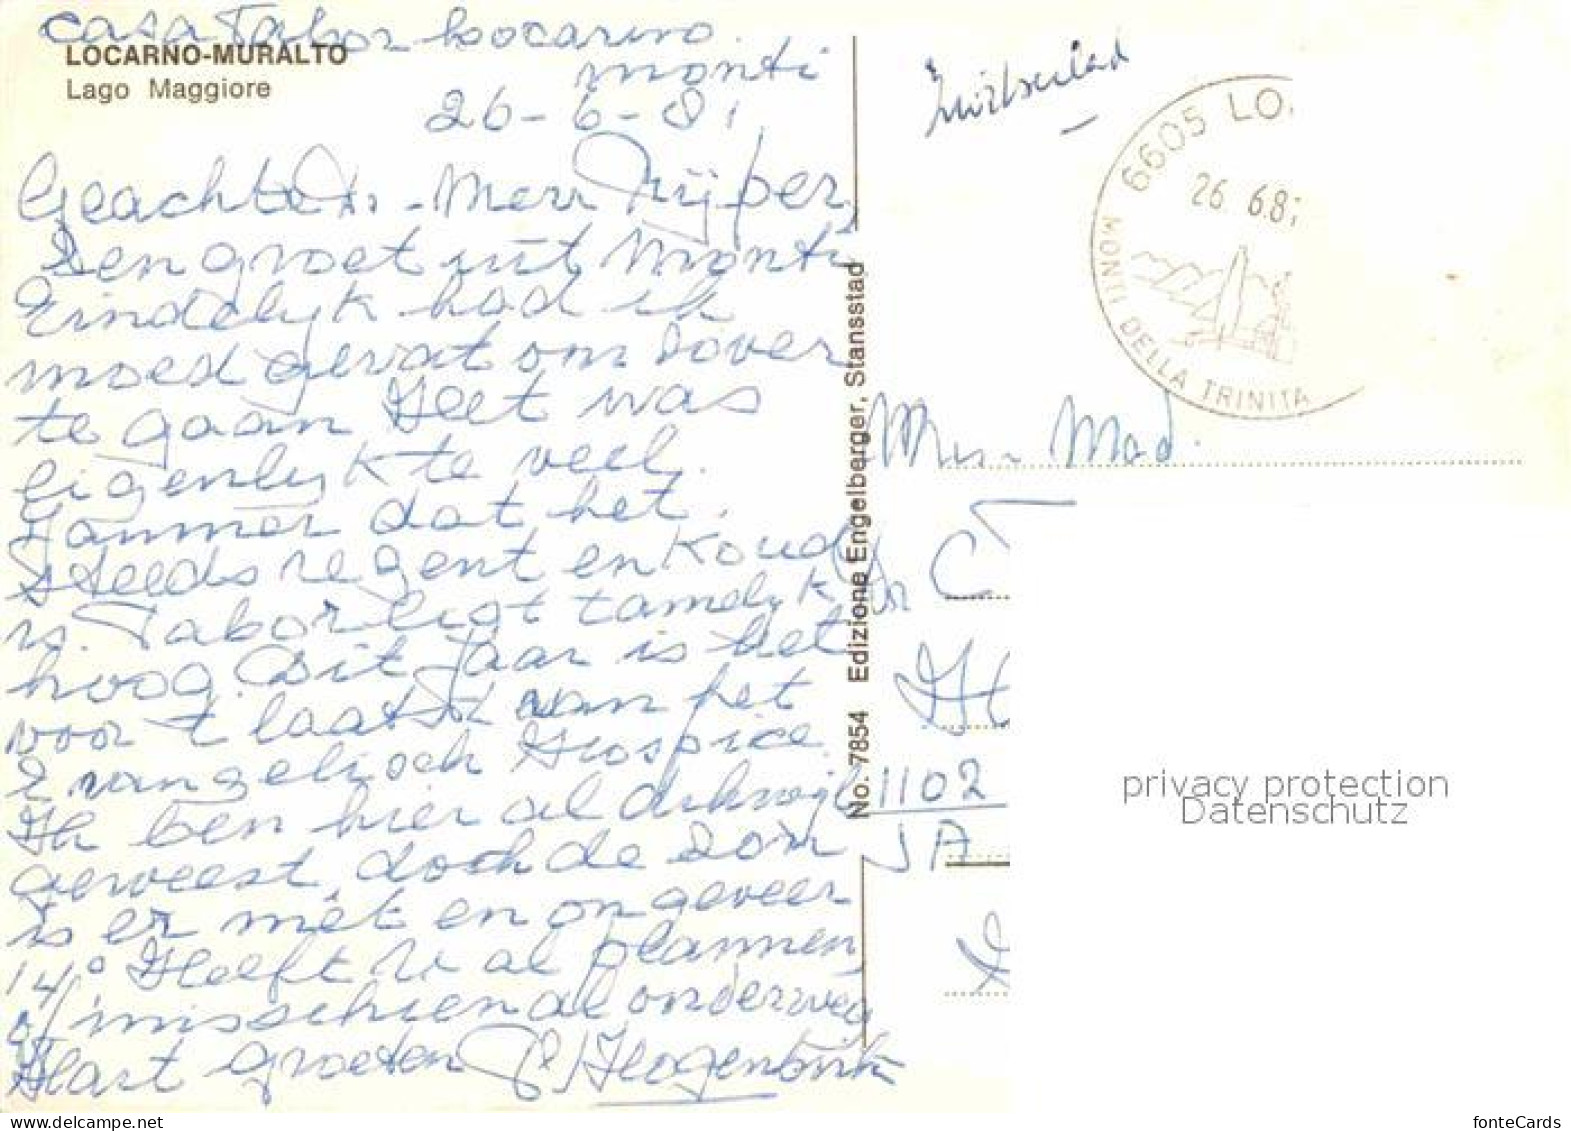 Casa Tabor Locarno.
LOCARNO-MURALTO
monti
Lago Maggiore
26-6-81
Geachte Mevr
Een groet uit Monti
Eindelijk had ik
moed gevat om zover
te gaan Heet was
eigenlijk te veel.
Jammer dat het
steeds regent en koud
is. Tabor ligt tamelijk
hoog. Dit Jaar is het
voor 't laatst van het
Evangelisch Hospice.
Ik ben hier al dikwijls
geweest, doch de zon
is er niet en ongeveer
14° Heeft U al plannen
of misschien al onderweg
Hart groeten
No. 7854 Edizione Engelberger, Stansstad
6605 LO
26. 6.81
MONTI DELLA TRINITA
Mad.
C
1102
privacy protection
Datenschutz
www.delcampe.net
fonteCards